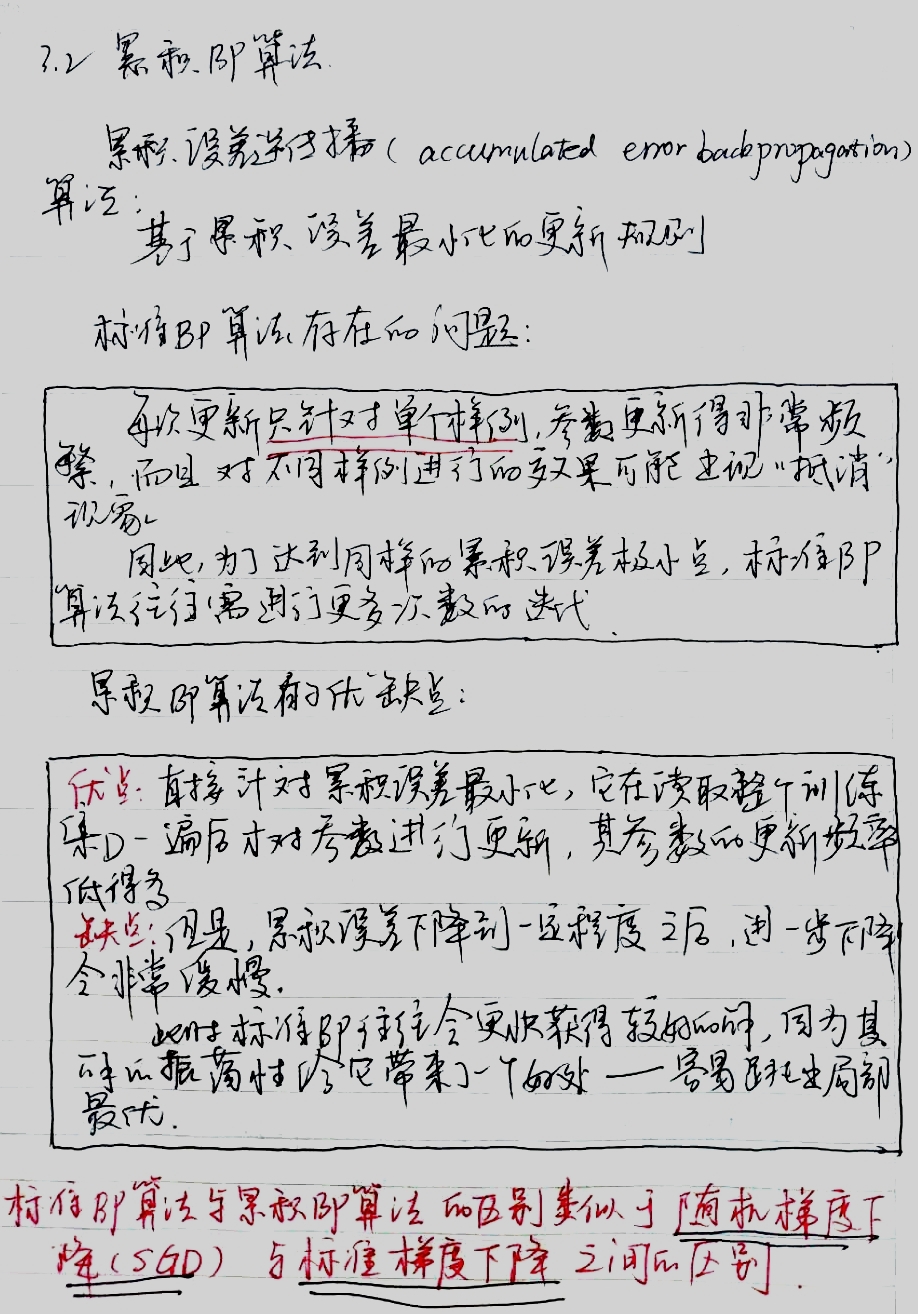 3.2 累积BP算法
累积误差逆传播(accumulated error backpropagation)
算法:
基于累积误差最小化的更新规则
标准BP算法存在的问题:
每次更新只针对单个样例,参数更新得非常频
繁,而且对不同样例进行的效果可能出现“抵消”
现象。
因此,为了达到同样的累积误差极小点,标准BP
算法往往需进行更多次数的迭代.
累积BP算法有的优缺点:
优点:直接针对累积误差最小化,它在读取整个训练
集D一遍后才对参数进行更新,其参数的更新频率
低得多
缺点:但是,累积误差下降到一定程度之后,进一步下降
会非常缓慢.
此时标准BP往往会更快获得较好的解,因为其
解的振荡性给它带来了一个好处——容易跳出局部
最优.
标准BP算法与累积BP算法的区别类似于随机梯度下
降(SGD)与标准梯度下降之间的区别.